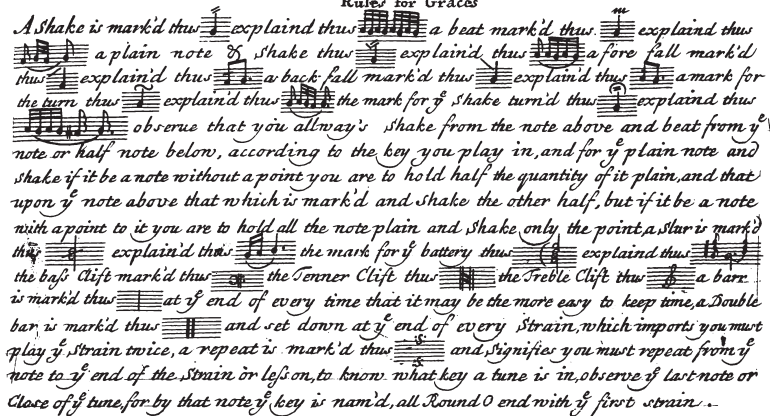 Rules for Graces
A Shake is mark'd thus explaind thus a beat mark'd thus explaind thus
a plain note & Shake thus explain'd thus a fore fall mark'd
thus explain'd thus a back fall mark'd thus explain'd thus a mark for
the turn thus explain'd thus the mark for yᵉ Shake turn'd thus explaind thus
observe that you allway's Shake from the note above and beat from yᵉ
note or half note below, according to the key you play in, and for yᵉ plain note and
Shake if it be a note without a point you are to hold half the quantity of it plain, and that
upon yᵉ note above that which is mark'd and Shake the other half, but if it be a note
with a point to it you are to hold all the note plain and Shake only the point, a Slur is mark'd
thus explain'd thus the mark for yᵉ battery thus explaind thus
the bass Clift mark'd thus the Tenner Clift thus the Treble Clift thus a barr
is mark'd thus at yᵉ end of every time that it may be the more easy to keep time, a Double
bar is mark'd thus and set down at yᵉ end of every Strain, which imports you must
play yᵉ Strain twice, a repeat is mark'd thus and Signifies you must repeat from yᵉ
note to yᵉ end of the Strain or leſson, to know what key a tune is in, observe yᵉ last note or
Close of yᵉ tune, for by that note yᵉ key is nam'd, all Round O end with yᵉ first strain.